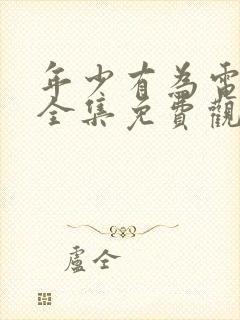 年少有為電
全集免費觀
盧仝